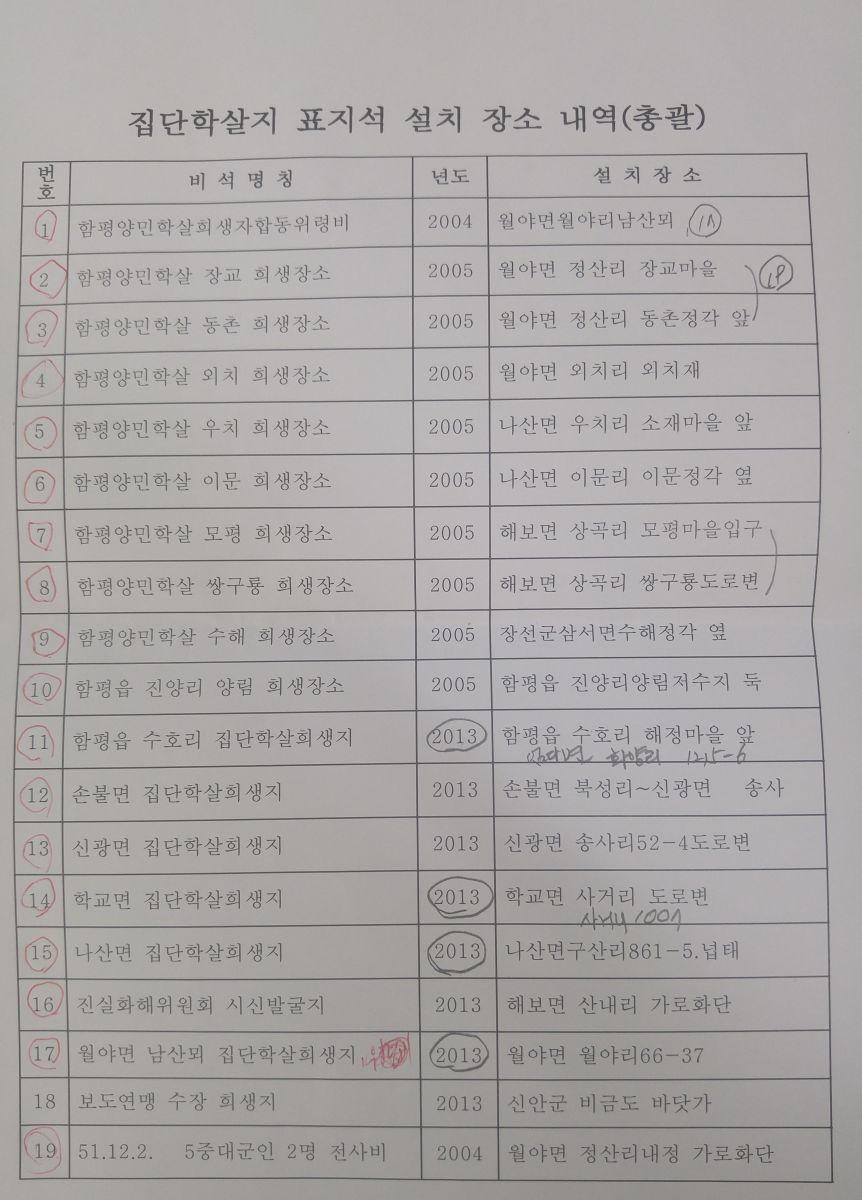 집단학살지 표지석 설치 장소 내역(총괄)
번호 비 석 명 칭 년도 설 치 장 소
1 함평양민학살희생자합동위령비 2004 월야면월야리남산뫼
2 함평양민학살 장교 희생장소 2005 월야면 정산리 장교마을
3 함평양민학살 동촌 희생장소 2005 월야면 정산리 동촌정각 앞
4 함평양민학살 외치 희생장소 2005 월야면 외치리 외치재
5 함평양민학살 우치 희생장소 2005 나산면 우치리 소재마을 앞
6 함평양민학살 이문 희생장소 2005 나산면 이문리 이문정각 옆
7 함평양민학살 모평 희생장소 2005 해보면 상곡리 모평마을입구
8 함평양민학살 쌍구룡 희생장소 2005 해보면 상곡리 쌍구룡도로변
9 함평양민학살 수해 희생장소 2005 장선군삼서면수해정각 옆
10 함평읍 진양리 양림 희생장소 2005 함평읍 진양리양림저수지 둑
11 함평읍 수호리 집단학살희생지 2013 함평읍 수호리 해정마을 앞
화양리
12 손불면 집단학살희생지 2013 손불면 북성리~신광면 송사
13 신광면 집단학살희생지 2013 신광면 송사리52-4도로변
14 학교면 집단학살희생지 2013 학교면 사거리 도로변
15 나산면 집단학살희생지 2013 나산면구산리861-5.넙태
16 진실화해위원회 시신발굴지 2013 해보면 산내리 가로화단
17 월야면 남산뫼 집단학살희생지 2013 월야면 월야리66-37
18 보도연맹 수장 희생지 2013 신안군 비금도 바닷가
19 51.12.2. 5중대군인 2명 전사비 2004 월야면 정산리내정 가로화단